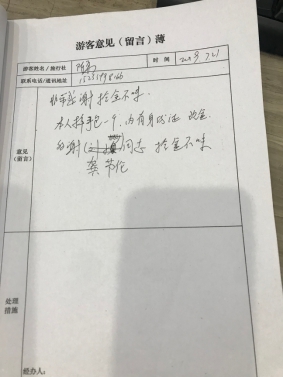 游客意见(留言)薄
游客姓名/旅行社
时间
联系电话/通讯地址
意见
(留言)
非常感谢拾金不昧
本人掉手包一个,内有身份证 现金
感谢 同志 拾金不昧
龚节伦
处理
措施
经办人: